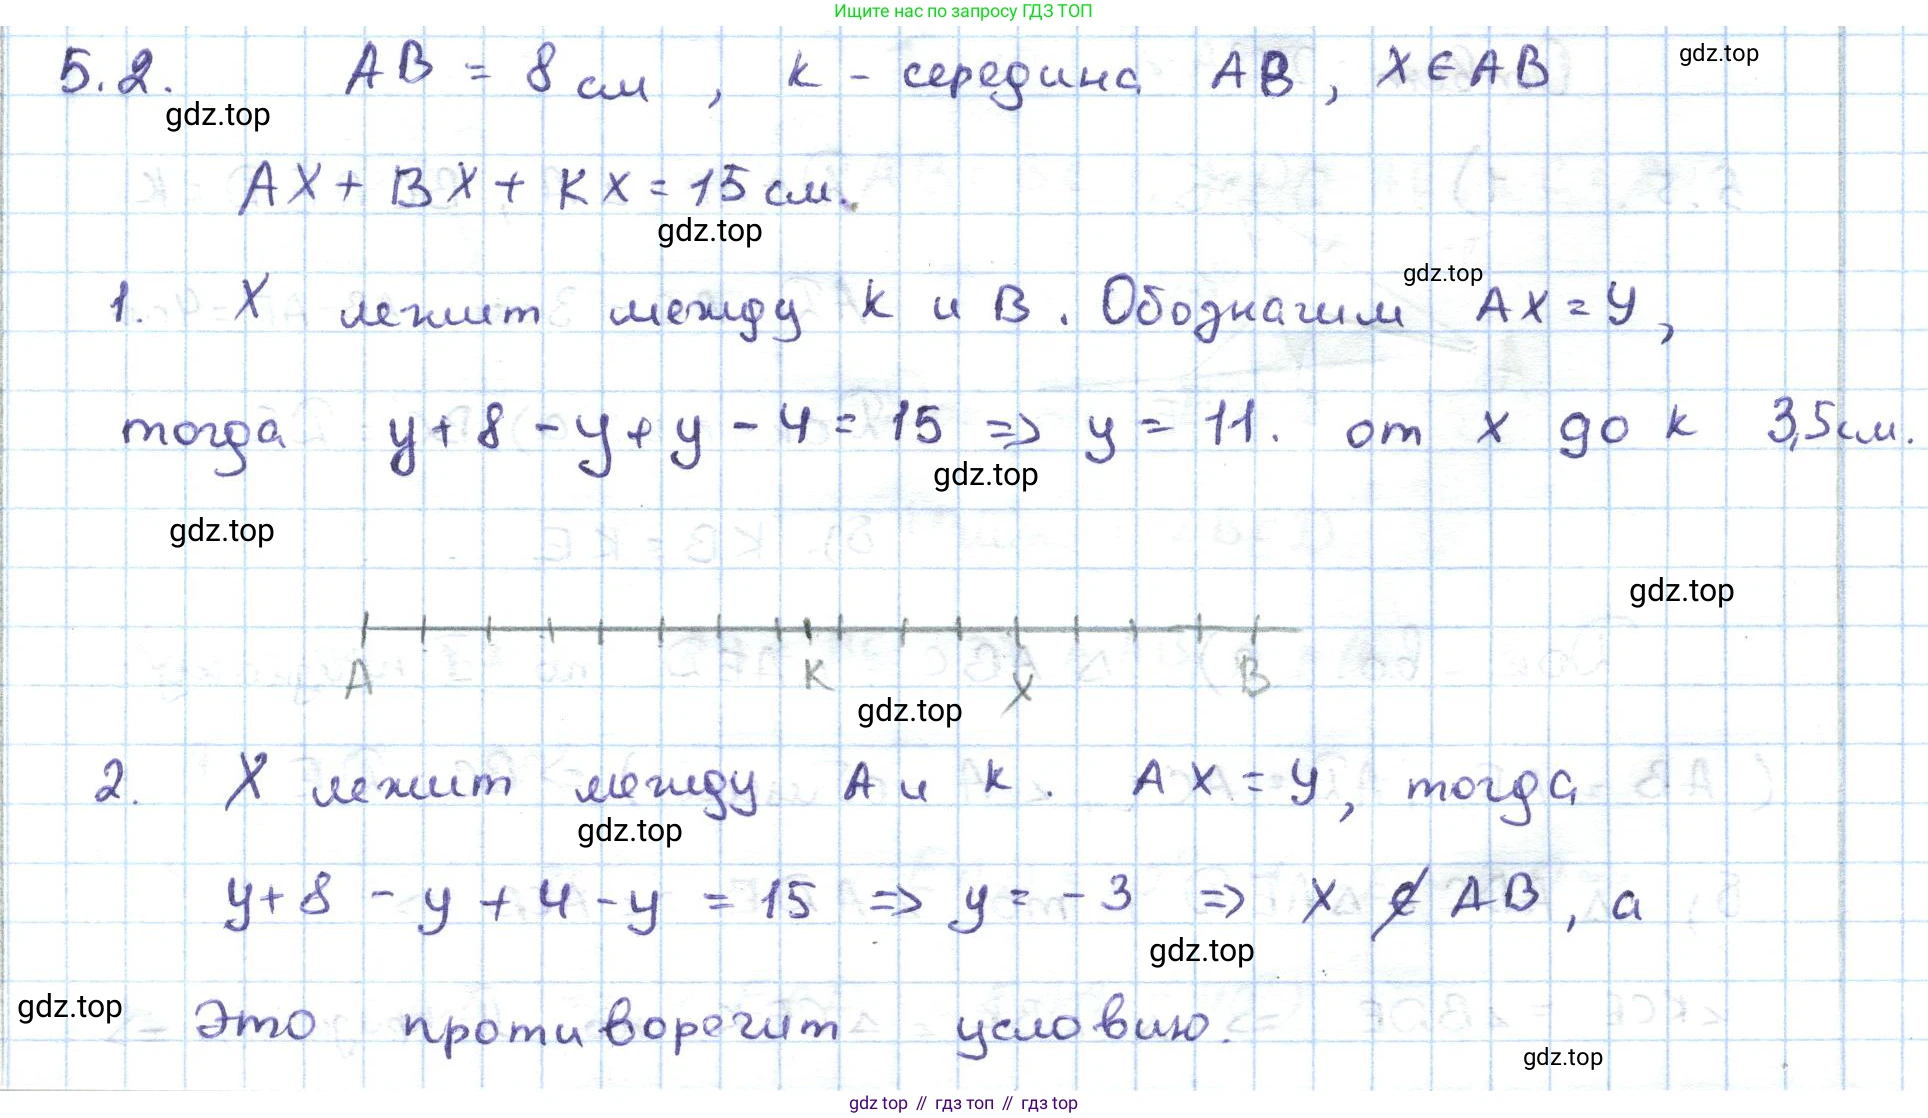 Ищите нас по запросу ГДЗ ТОП
5.2. AB = 8 см, K - середина AB, X ∈ AB
gdz.top
gdz.top
AX + BX + KX = 15 см.
gdz.top
gdz.top
1. X лежит между K и B. Обозначим AX = y,
тогда y + 8 - y + y - 4 = 15 => y = 11. от X до K 3,5 см.
gdz.top
gdz.top
gdz.top
A K X B
gdz.top
2. X лежит между A и K. AX = y, тогда
gdz.top
y + 8 - y + 4 - y = 15 => y = -3 => X ∉ AB, а
gdz.top
gdz.top
это противоречит условию.
gdz.top
gdz.top // гдз топ // гдз top